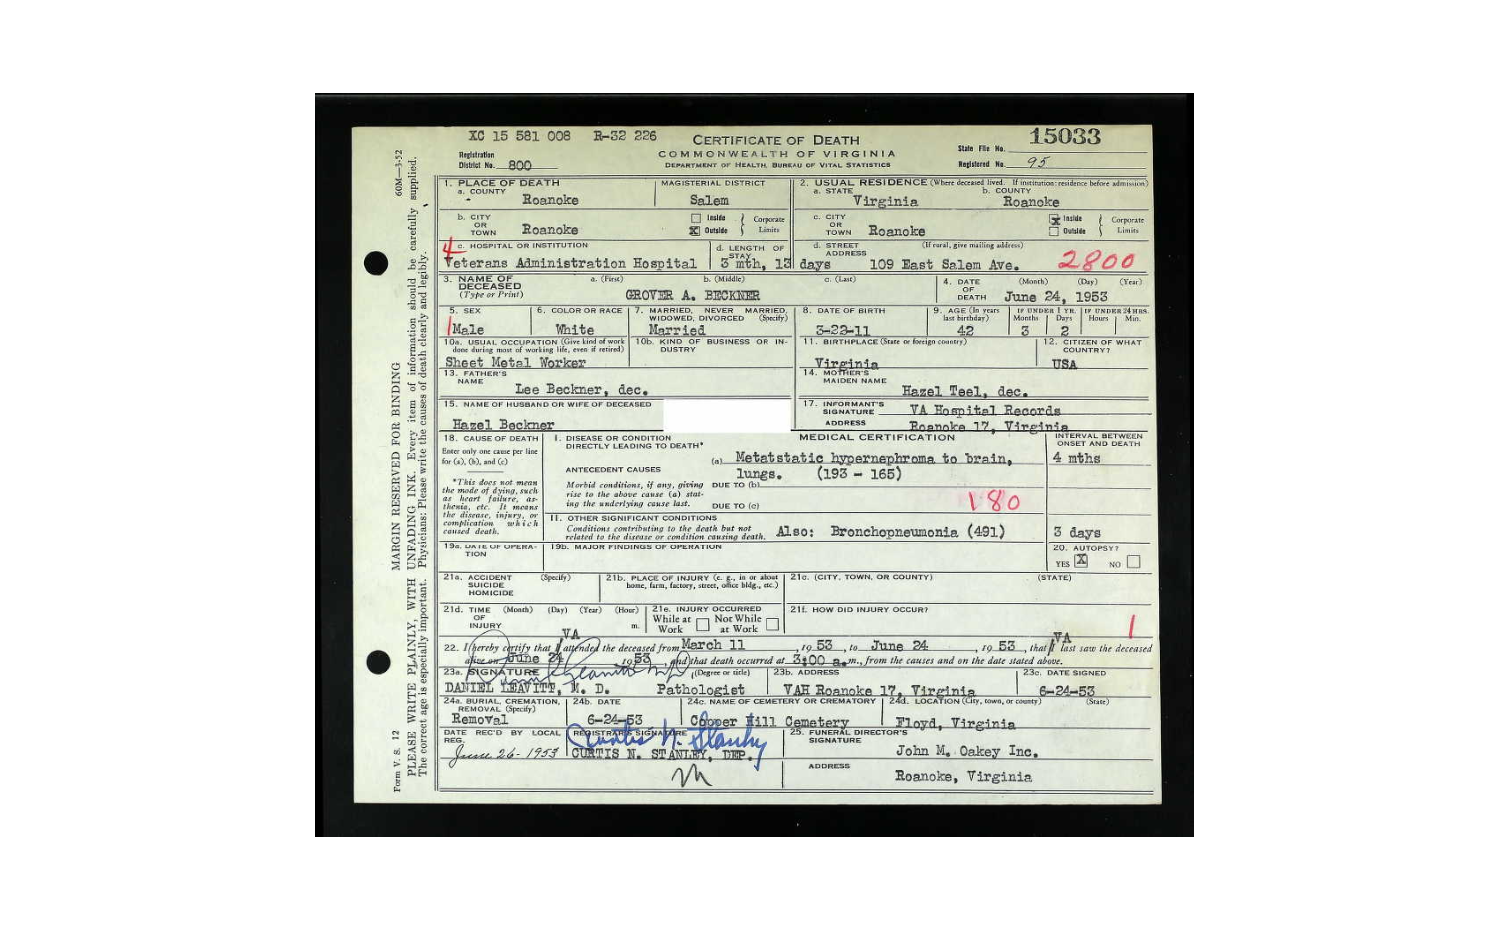 XC 15 581 008 R-32 226 CERTIFICATE OF DEATH 15033
COMMONWEALTH OF VIRGINIA
DEPARTMENT OF HEALTH, BUREAU OF VITAL STATISTICS
Registration District No. 800
State File No.
Registered No. 95
1. PLACE OF DEATH
a. COUNTY Roanoke
MAGISTERIAL DISTRICT Salem
2. USUAL RESIDENCE (Where deceased lived. If institution: residence before admission)
a. STATE Virginia
b. COUNTY Roanoke
b. CITY OR TOWN Roanoke
Inside
X Outside
Corporate Limits
c. CITY OR TOWN Roanoke
X Inside
Outside
Corporate Limits
4
c. HOSPITAL OR INSTITUTION
Veterans Administration Hospital
d. LENGTH OF STAY
3 mth, 13 days
d. STREET ADDRESS (If rural, give mailing address)
109 East Salem Ave. 2800
3. NAME OF DECEASED (Type or Print)
a. (First) b. (Middle) c. (Last)
GROVER A. BECKNER
4. DATE OF DEATH (Month) (Day) (Year)
June 24, 1953
5. SEX
1 Male
6. COLOR OR RACE
White
7. MARRIED, NEVER MARRIED, WIDOWED, DIVORCED (Specify)
Married
8. DATE OF BIRTH
3-22-11
9. AGE (In years last birthday)
42
IF UNDER 1 YR. Months Days
3 2
IF UNDER 24 HRS. Hours Min.
10a. USUAL OCCUPATION (Give kind of work done during most of working life, even if retired)
Sheet Metal Worker
10b. KIND OF BUSINESS OR INDUSTRY
11. BIRTHPLACE (State or foreign country)
Virginia
12. CITIZEN OF WHAT COUNTRY?
USA
13. FATHER'S NAME
Lee Beckner, dec.
14. MOTHER'S MAIDEN NAME
Hazel Teel, dec.
15. NAME OF HUSBAND OR WIFE OF DECEASED
Hazel Beckner
17. INFORMANT'S SIGNATURE VA Hospital Records
ADDRESS Roanoke 17, Virginia
18. CAUSE OF DEATH
Enter only one cause per line for (a), (b), and (c)
*This does not mean the mode of dying, such as heart failure, asthenia, etc. It means the disease, injury, or complication which caused death.
MEDICAL CERTIFICATION
INTERVAL BETWEEN ONSET AND DEATH
I. DISEASE OR CONDITION DIRECTLY LEADING TO DEATH*
(a) Metatstatic hypernephroma to brain, 4 mths
lungs. (193 - 165)
ANTECEDENT CAUSES
Morbid conditions, if any, giving rise to the above cause (a) stating the underlying cause last.
DUE TO (b)
DUE TO (c)
180
II. OTHER SIGNIFICANT CONDITIONS
Conditions contributing to the death but not related to the disease or condition causing death.
Also: Bronchopneumonia (491) 3 days
19a. DATE OF OPERATION
19b. MAJOR FINDINGS OF OPERATION
20. AUTOPSY?
YES X NO
21a. ACCIDENT SUICIDE HOMICIDE (Specify)
21b. PLACE OF INJURY (e. g., in or about home, farm, factory, street, office bldg., etc.)
21c. (CITY, TOWN, OR COUNTY) (STATE)
21d. TIME OF INJURY (Month) (Day) (Year) (Hour) m.
21e. INJURY OCCURRED
While at Work
Not While at Work
21f. HOW DID INJURY OCCUR?
1
VA VA
22. I hereby certify that I attended the deceased from March 11, 1953, to June 24, 1953, that I last saw the deceased
alive on June 24, 1953, and that death occurred at 3:00 a.m., from the causes and on the date stated above.
23a. SIGNATURE (Degree or title)
DANIEL LEAVITT, M. D. Pathologist
23b. ADDRESS
VAH Roanoke 17, Virginia
23c. DATE SIGNED
6-24-53
24a. BURIAL, CREMATION, REMOVAL (Specify)
Removal
24b. DATE
6-24-53
24c. NAME OF CEMETERY OR CREMATORY
Copper Hill Cemetery
24d. LOCATION (City, town, or county) (State)
Floyd, Virginia
DATE REC'D BY LOCAL REG.
June 26-1953
REGISTRAR'S SIGNATURE
Curtis N. Stanley
CURTIS N. STANLEY, DEP.
25. FUNERAL DIRECTOR'S SIGNATURE
John M. Oakey Inc.
ADDRESS
Roanoke, Virginia
Form V. S. 12
60M—3-52
MARGIN RESERVED FOR BINDING
PLEASE WRITE PLAINLY, WITH UNFADING INK. Every item of information should be carefully supplied.
The correct age is especially important. Physicians: Please write the causes of death clearly and legibly.